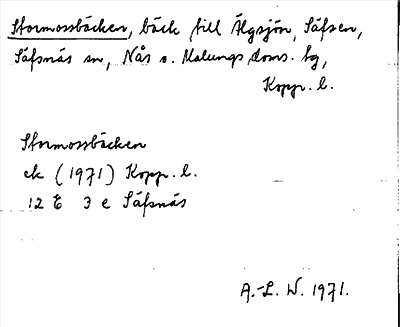 Stormossbäcken, bäck till Älgsjön, Säfsen,
Säfsnäs sn, Nås o. Malungs doms. tg,
Kopp. l.
Stormossbäcken
ek (1971) Kopp. l.
12 E 3 e Säfsnäs
A.-L. W. 1971.